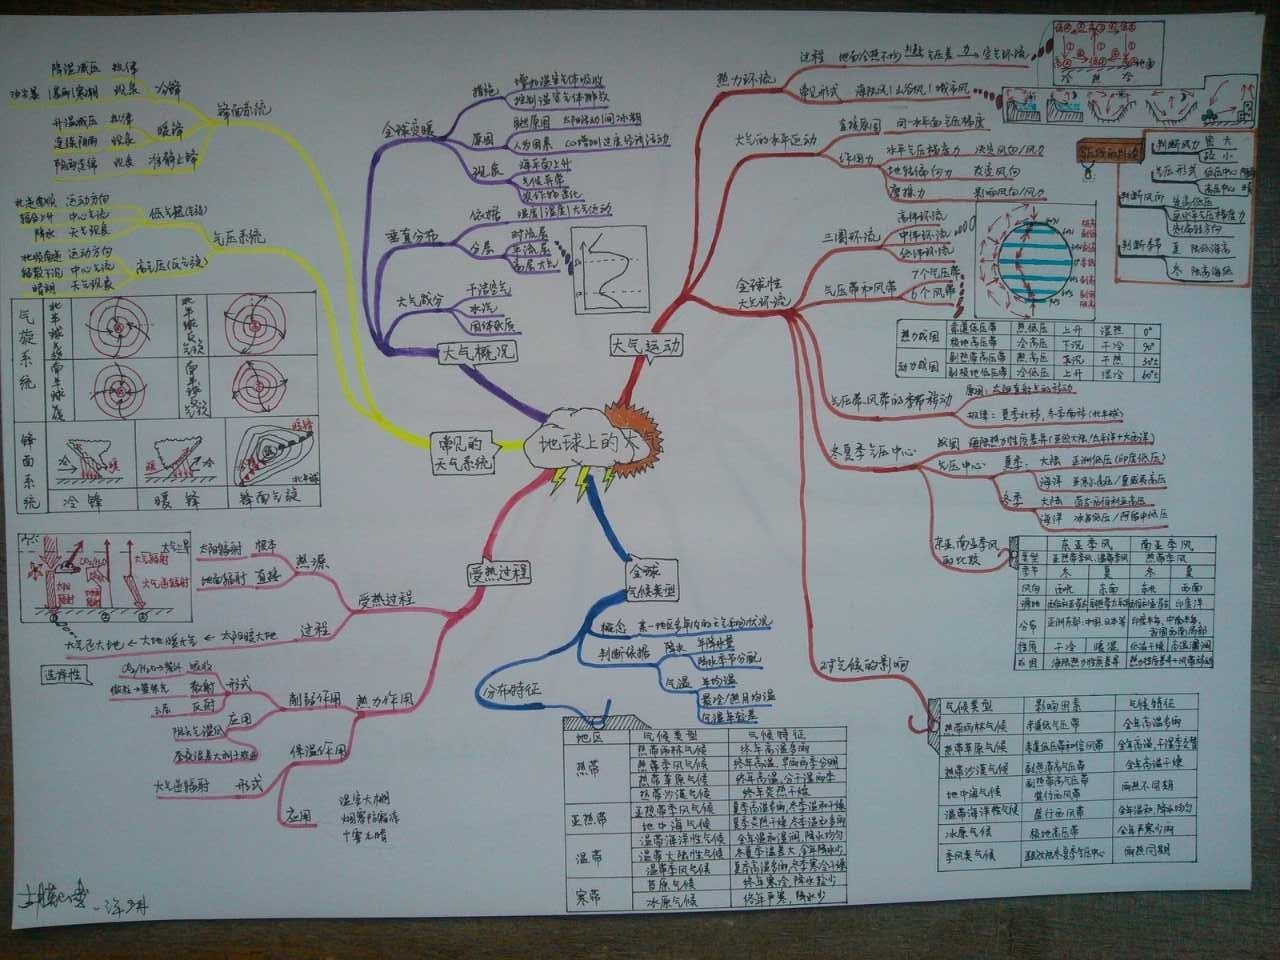 地球上的大气
大气运动
热力环流
过程 地面冷热不均
空气环流
常见形式 海陆风|山谷风|城市风
冷 热 冷
大气的水平运动
直接原因 同一水平面气压梯度
作用力
水平气压梯度力 决定风向/风力
地转偏向力 改变风向
摩擦力 影响风向/风力
判断风力
气压形式
判断风向
判断季节
夏
冬
全球性
大气环流
三圈环流
高纬环流
中纬环流
低纬环流
气压带和风带
7个气压带
6个风带
热力成因 赤道低压带 热低压 上升 湿热 0°
极地高压带 冷高压 下沉 干冷 90°
动力成因 副热带高压带 热高压 下沉 干热 30°
副极地低压带 冷低压 上升 湿冷 60°
气压带风带的季节移动
原因:太阳直射点的移动
规律:夏季北移,冬季南移(北半球)
冬夏季气压中心
成因
气压中心
夏季:大陆 亚洲低压(印度低压)
海洋 夏威夷高压
冬季 大陆
海洋 冰岛低压/阿留申低压
东亚南亚季风
的比较
东亚季风 南亚季风
季节 冬 夏 冬 夏
风向 西北 东南 东北 西南
源地 印度洋
分布
性质
成因 海陆热力性质差异
对气候的影响
气候类型 影响因素 气候特征
热带雨林气候 赤道低气压带 全年高温多雨
热带草原气候 赤道低压带和信风带 全年高温,干湿季交替
热带沙漠气候 副热带高气压带 全年高温干燥
地中海气候 副热带高气压带
盛行西风带 雨热不同期
温带海洋性气候 盛行西风带 全年温和,降水均匀
冰原气候 极地高压带 全年严寒少雨
季风类气候 雨热同期
大气概况
全球变暖
措施
增加温室气体吸收
控制温室气体排放
原因
自然原因 太阳活动|间冰期
人为因素
现象
海平面上升
气候异常
垂直分布
依据 温度|密度|大气运动
分层
对流层
平流层
高层大气
大气成分
干洁空气
水汽
固体杂质
常见的
天气系统
锋面系统
降温减压 规律
现象 冷锋
升温减压 规律
连续阴雨 现象 暖锋
阴雨连绵 现象 准静止锋
气压系统
低气压(气旋)
运动方向
中心气流
降水 天气现象
运动方向
中心气流
晴朗 天气现象
气旋系统
北半球气旋
北半球反气旋
南半球气旋
南半球反气旋
锋面系统
冷 暖
暖 冷
暖锋
冷锋 暖锋 锋面气旋
受热过程
热源
太阳辐射 根本
地面辐射 直接
受热过程
过程
大气还大地 ← 大地暖大气 ← 太阳暖大地
大气上界
大气辐射
大气逆辐射
选择性
热力作用
削弱作用
形式
吸收
散射
云层 反射
应用
保温作用
大气逆辐射 形式
应用
温室大棚
烟雾防霜冻
十雾九晴
全球
气候类型
概念 某一地区多年内的天气平均状况
判断依据
降水
年降水量
降水季节分配
气温
年均温
最冷/热月均温
气温年较差
分布特征
地区 气候类型 气候特征
热带 热带雨林气候 终年高温多雨
热带季风气候 终年高温,旱雨两季分明
热带草原气候 终年高温,分干湿两季
热带沙漠气候 终年炎热干燥
亚热带 亚热带季风气候 夏季高温多雨,冬季温和干燥
地中海气候 夏季炎热干燥,冬季温和多雨
温带 温带海洋性气候 全年温和湿润,降水均匀
温带大陆性气候 冬夏季温差大,全年降水少
温带季风气候 夏季高温多雨,冬季寒冷干燥
寒带 苔原气候 终年寒冷,降水较少
冰原气候 终年严寒,降水少